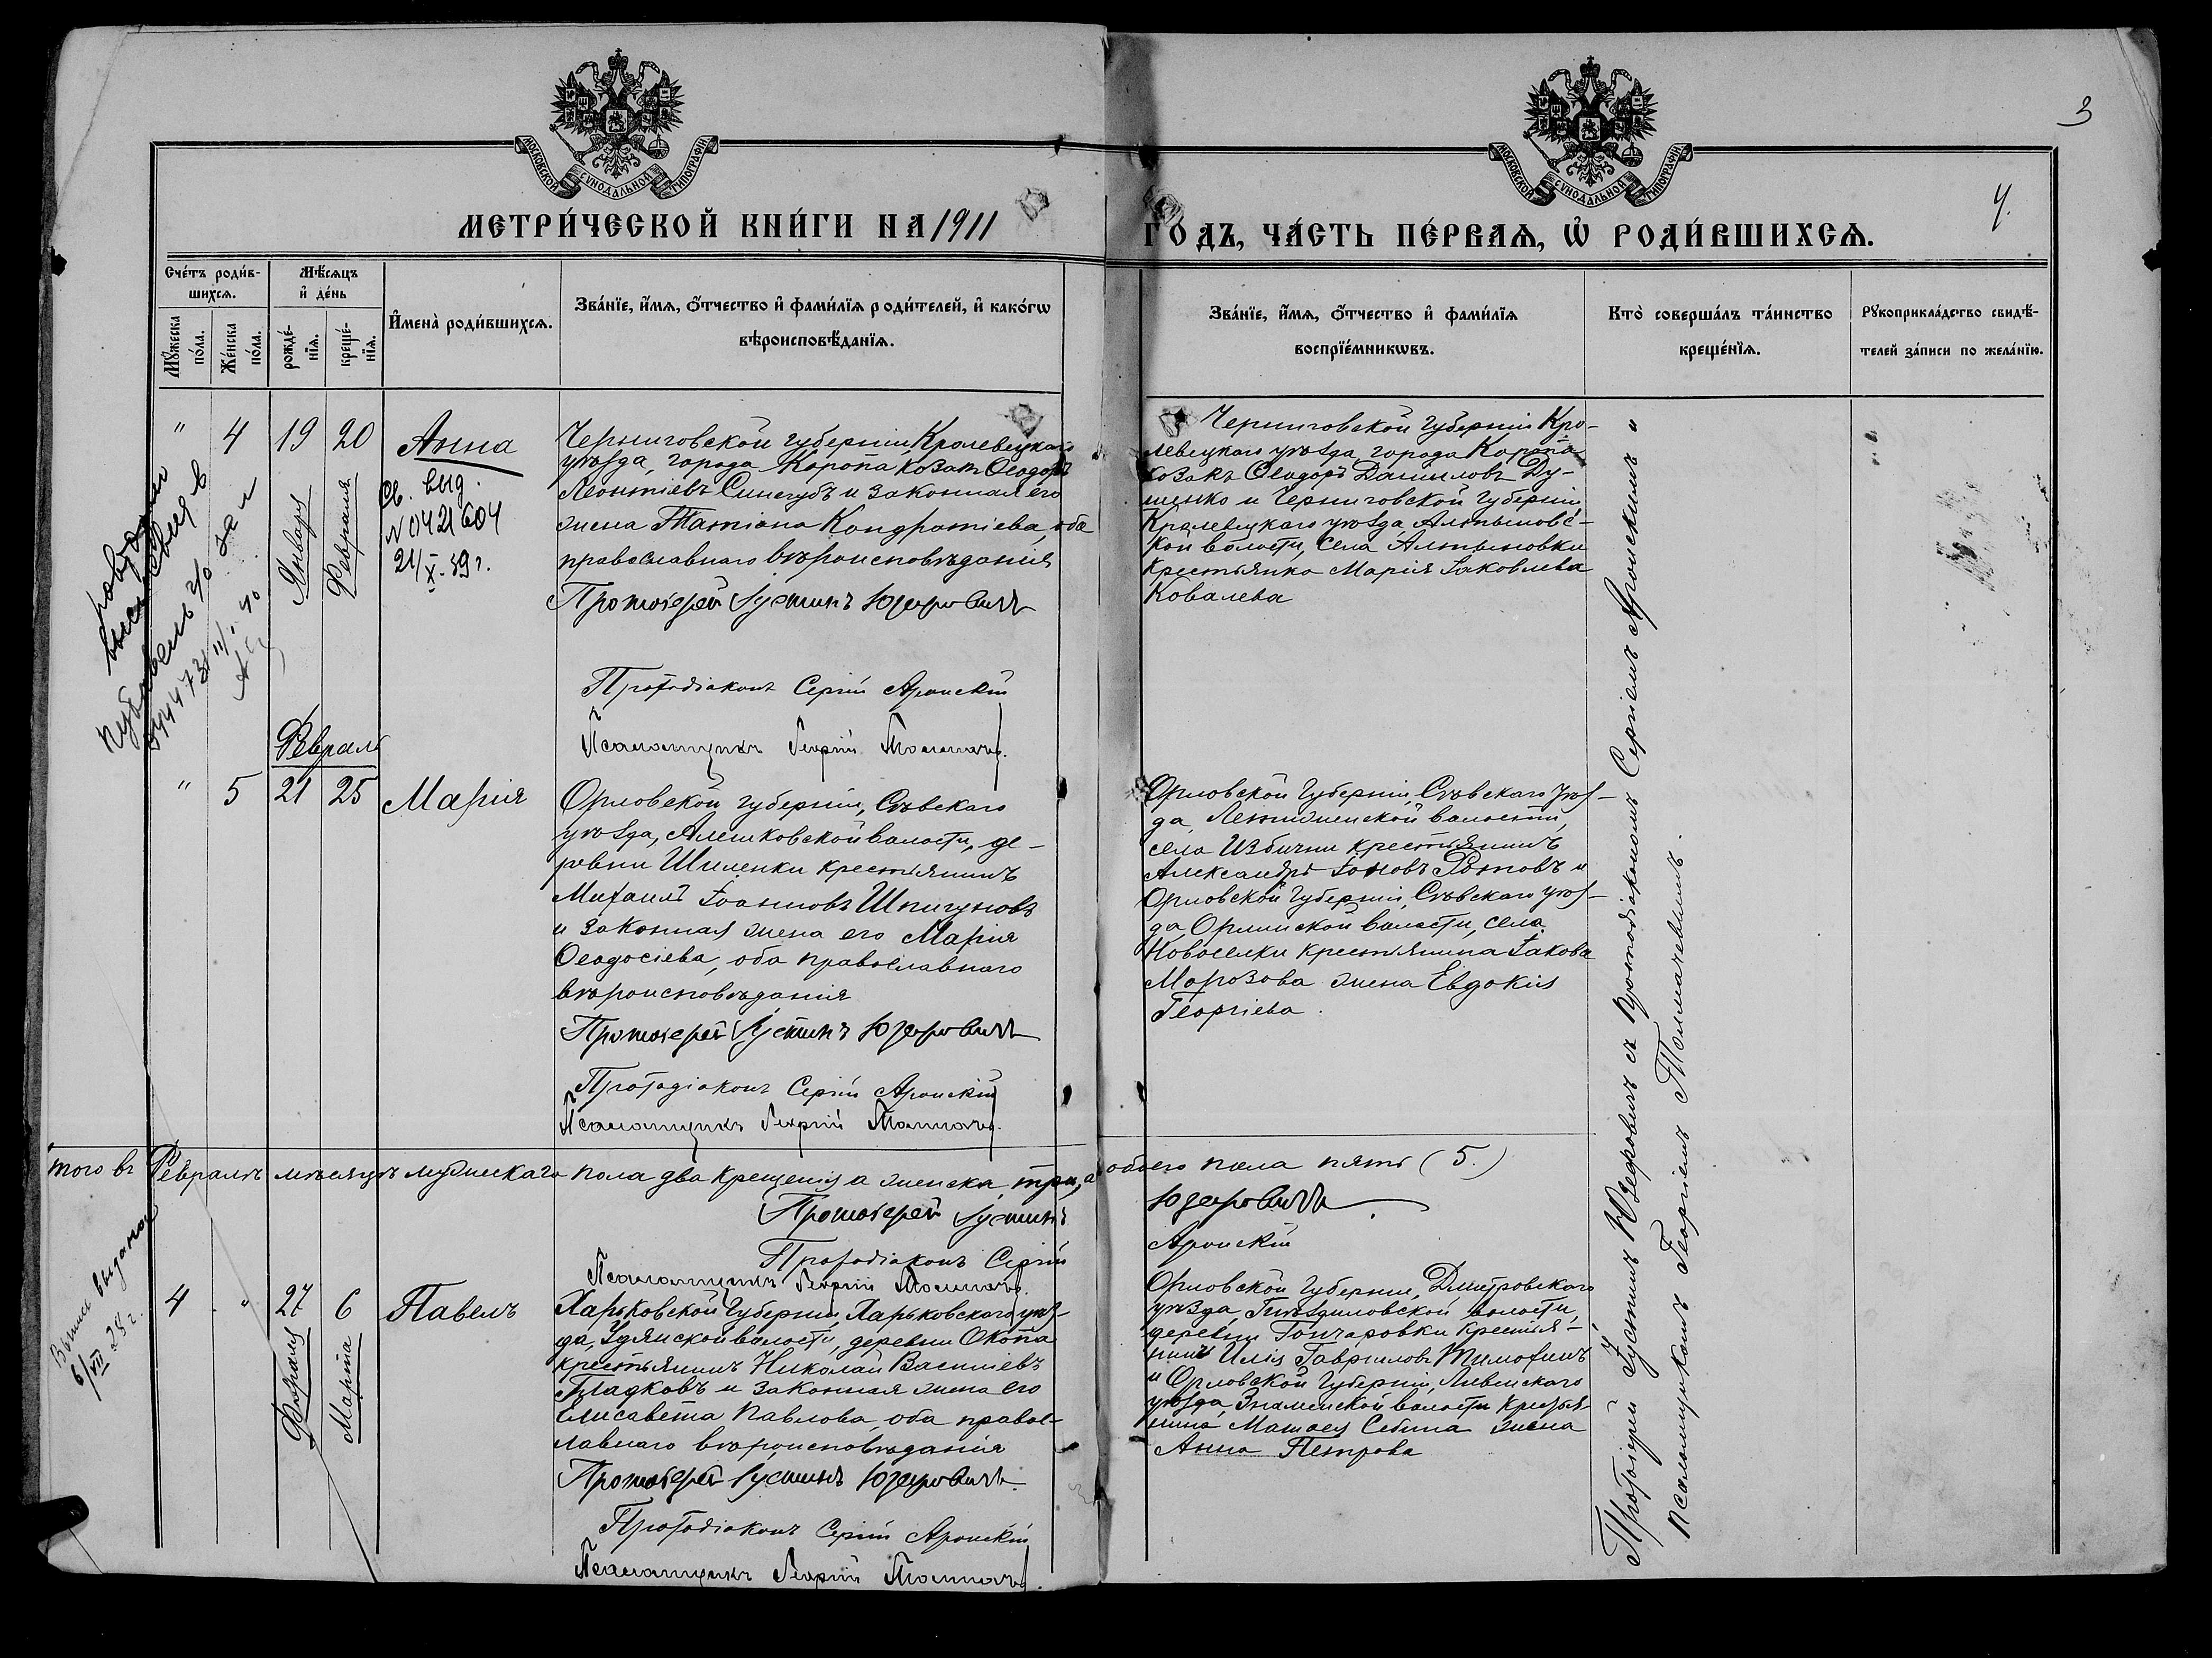 3
4.
МОСКОВСКОЙ СѴНОДАЛЬНОЙ ТИПОГРАФІИ.
МОСКОВСКОЙ СѴНОДАЛЬНОЙ ТИПОГРАФІИ.
МЕТРИ́ЧЕСКОЙ КНИ́ГИ НА 1911
ГО́ДЪ, ЧА́СТЬ ПЕ́РВАѦ, Ѡ҆ РОДИ́ВШИХСѦ.
Сче́тъ роди́в-
шихсѧ.
Мꙋ́жеска
по́ла.
Же́нска
по́ла.
Мѣ́сѧцъ
и҆ де́нь
рожде́-
нїѧ.
креще́-
нїѧ.
И҆мена̀ роди́вшихсѧ.
Зва́нїе, и҆́мѧ, ѻ҆́тчество и҆ фами́лїѧ роди́телей, и҆ како́гѡ
вѣроисповѣ́данїѧ.
Зва́нїе, и҆́мѧ, ѻ҆́тчество и҆ фами́лїѧ
воспрїе́мникѡвъ.
Кто̀ соверша́лъ та́инство
креще́нїѧ.
Рꙋкоприкла́дство свидѣ́-
телей за́писи по жела́нїю.
" 4 19 20 Анна
Января
Февраля
Св. выд.
N 0421604
21/X. 39 г.
Черниговской губерніи, Кролевецкаго
уѣзда, города Коропа козакъ Ѳеодоръ
Леонтіевъ Синегубъ и законная его
жена Татіана Кондратіева, оба
православнаго вѣроисповѣданія
Протоіерей Іустинъ Юзефовичъ
Протодіаконъ Сергій Аронскій
Псаломщикъ Георгій Толмачевъ.
Черниговской губерніи Кро-
левецкаго уѣзда города Коропа
козакъ Ѳеодоръ Даниловъ Ду-
щенко и Черниговской губерніи
Кролевецкаго уѣзда Алтыновс-
кой волости, села Алтыновки
крестьянка Марія Іаковлева
Ковалева
Февраль
" 5 21 25 Марія
Орловской губерніи, Сѣвскаго
уѣзда, Алешковской волости, де-
ревни Шиленки крестьянинъ
Михаилъ Іоанновъ Шпигуновъ
и законная жена его Марія
Ѳеодосіева, оба православнаго
вѣроисповѣданія
Протоіерей Іустинъ Юзефовичъ
Протодіаконъ Сергій Аронскій
Псаломщикъ Георгій Толмачевъ.
Орловской губерніи, Сѣвскаго уѣз-
да,
села Избични крестьянинъ
Александръ Іоновъ и
Орловской губерніи, Сѣвскаго уѣз-
да, волости, села
Новоселки крестьянина Іакова
Морозова жена Евдокія
Георгіева.
того въ Февралѣ мѣсяцѣ мужескаго пола два крещенія а женска три, а обоего пола пять (5.)
Протоіерей Іустинъ Юзефовичъ
Протодіаконъ Сергій Аронскій
Псаломщикъ Георгій Толмачевъ.
Выпись выдана
6/VII 28 г.
4 " 27 6 Павелъ
Февраля
Марта
Харьковской губерніи, Харьковскаго уѣз-
да, Удянской волости, деревни Окопа
крестьянинъ Николай Василіевъ
Гладковъ и законная жена его
Елисавета Павлова, оба правос-
лавнаго вѣроисповѣданія
Протоіерей Іустинъ Юзефовичъ.
Протодіаконъ Сергій Аронскій
Псаломщикъ Георгій Толмачевъ.
Орловской губерніи, Дмитровскаго
уѣзда, Гнѣздиловской волости,
деревни Гончаровки крестья-
нинъ Илія Гавриловъ Тимохинъ
и Орловской губерніи, Ливенскаго
уѣзда, Знаменской волости крестья-
нина Матѳея Себина жена
Анна Петрова
Протоіерей Іустинъ Юзефовичъ съ протодіакономъ Сергіемъ Аронскимъ и
псаломщикомъ Георгіемъ Толмачевымъ.